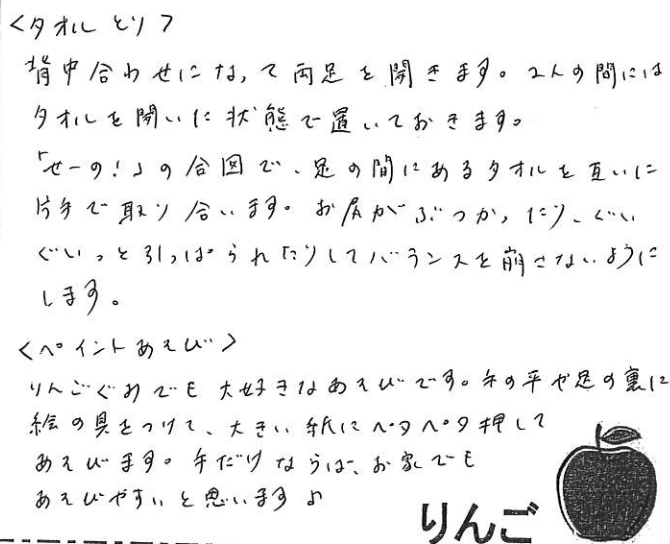 <タオルとり>
背中合わせになって両足を開きます。2人の間には
タオルを開いた状態で置いておきます。
「せーの！」の合図で、足の間にあるタオルを互いに
片手で取り合います。お尻がぶつかったり、ぐい
ぐいっと引っぱられたりしてバランスを崩さないように
します。
<ペイントあそび>
りんごぐみでも大好きなあそびです。手の平や足の裏に
絵の具をつけて、大きい紙にペタペタ押して
あそびます。手だけならば、お家でも
あそびやすいと思います♪
りんご